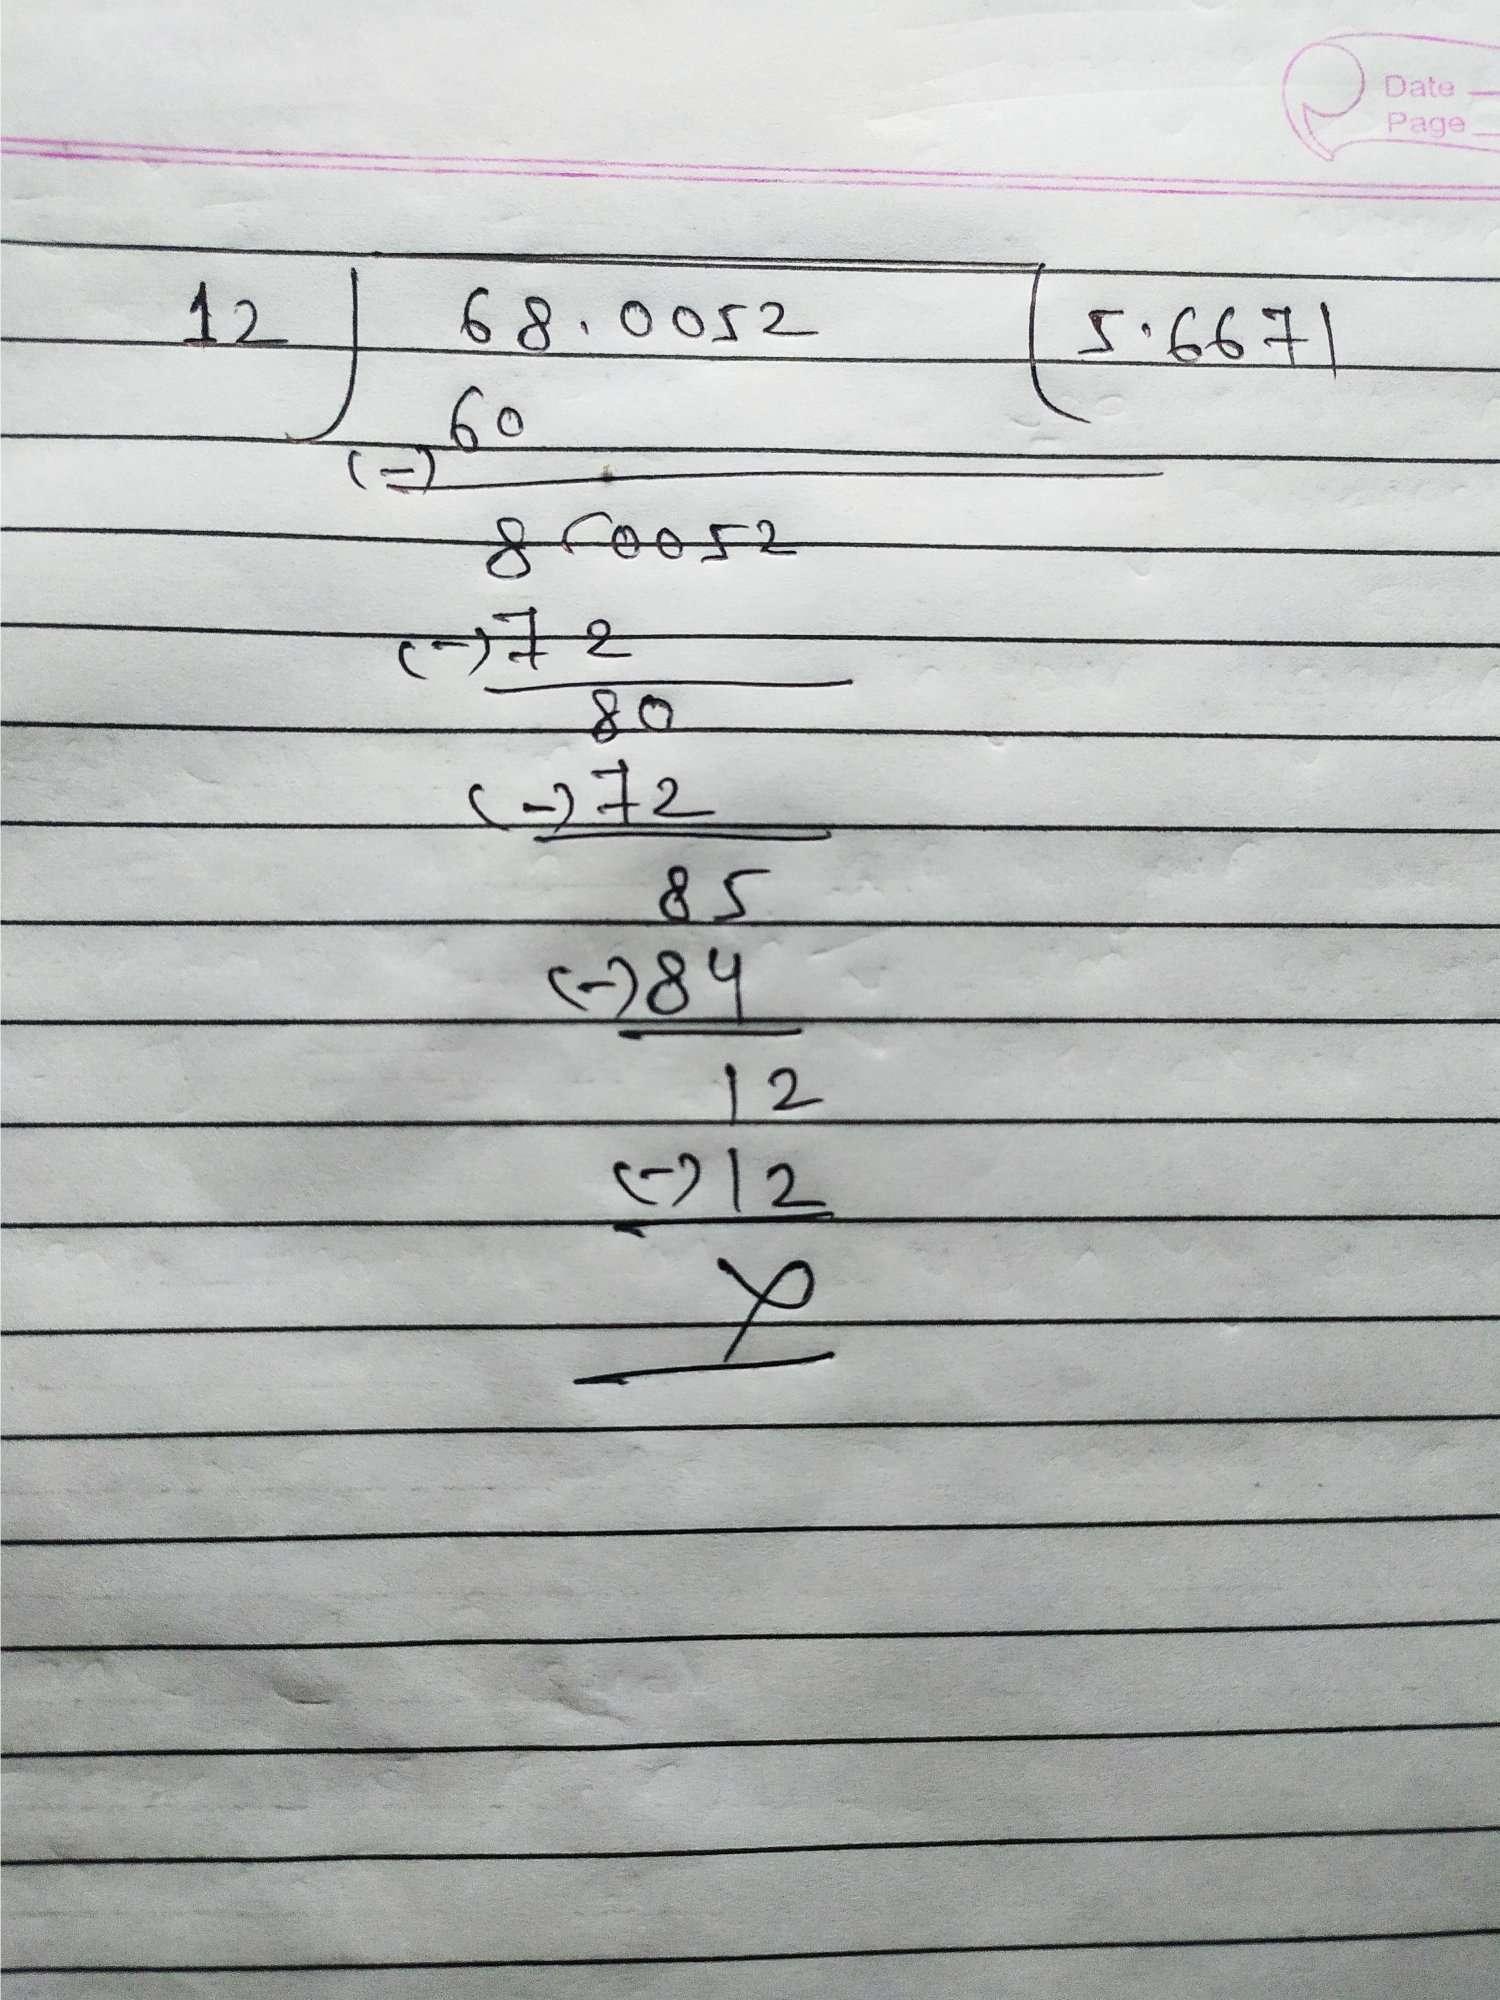 Date
Page
12 ) 68.0052 ( 5.6671
60
(-)
8 0052
(-) 72
80
(-) 72
85
(-) 84
12
(-) 12